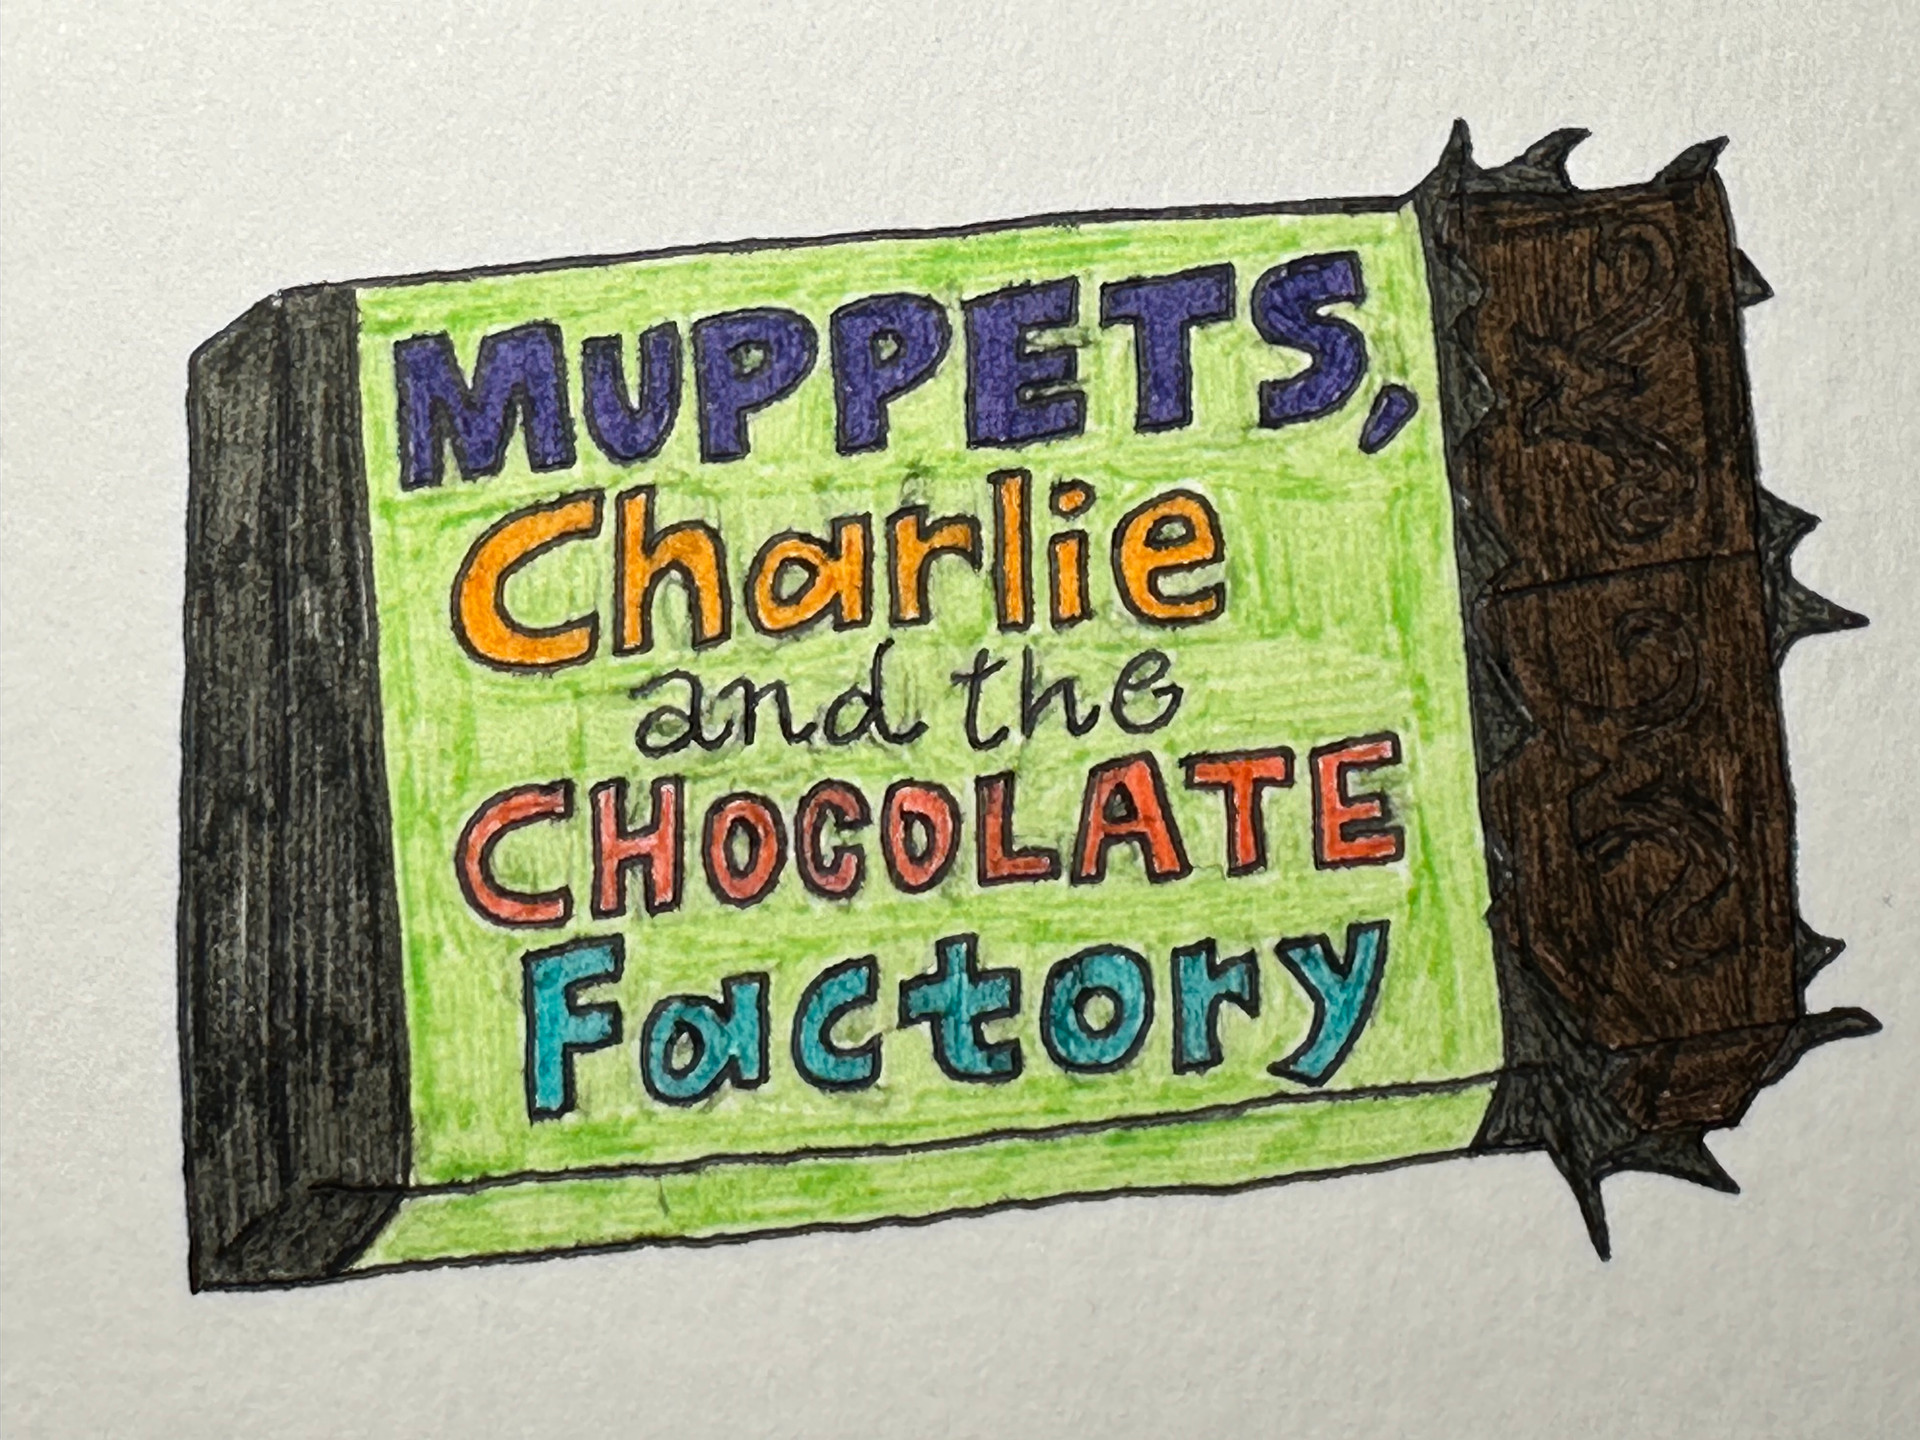 MUPPETS,
Charlie
and the
CHOCOLATE
Factory